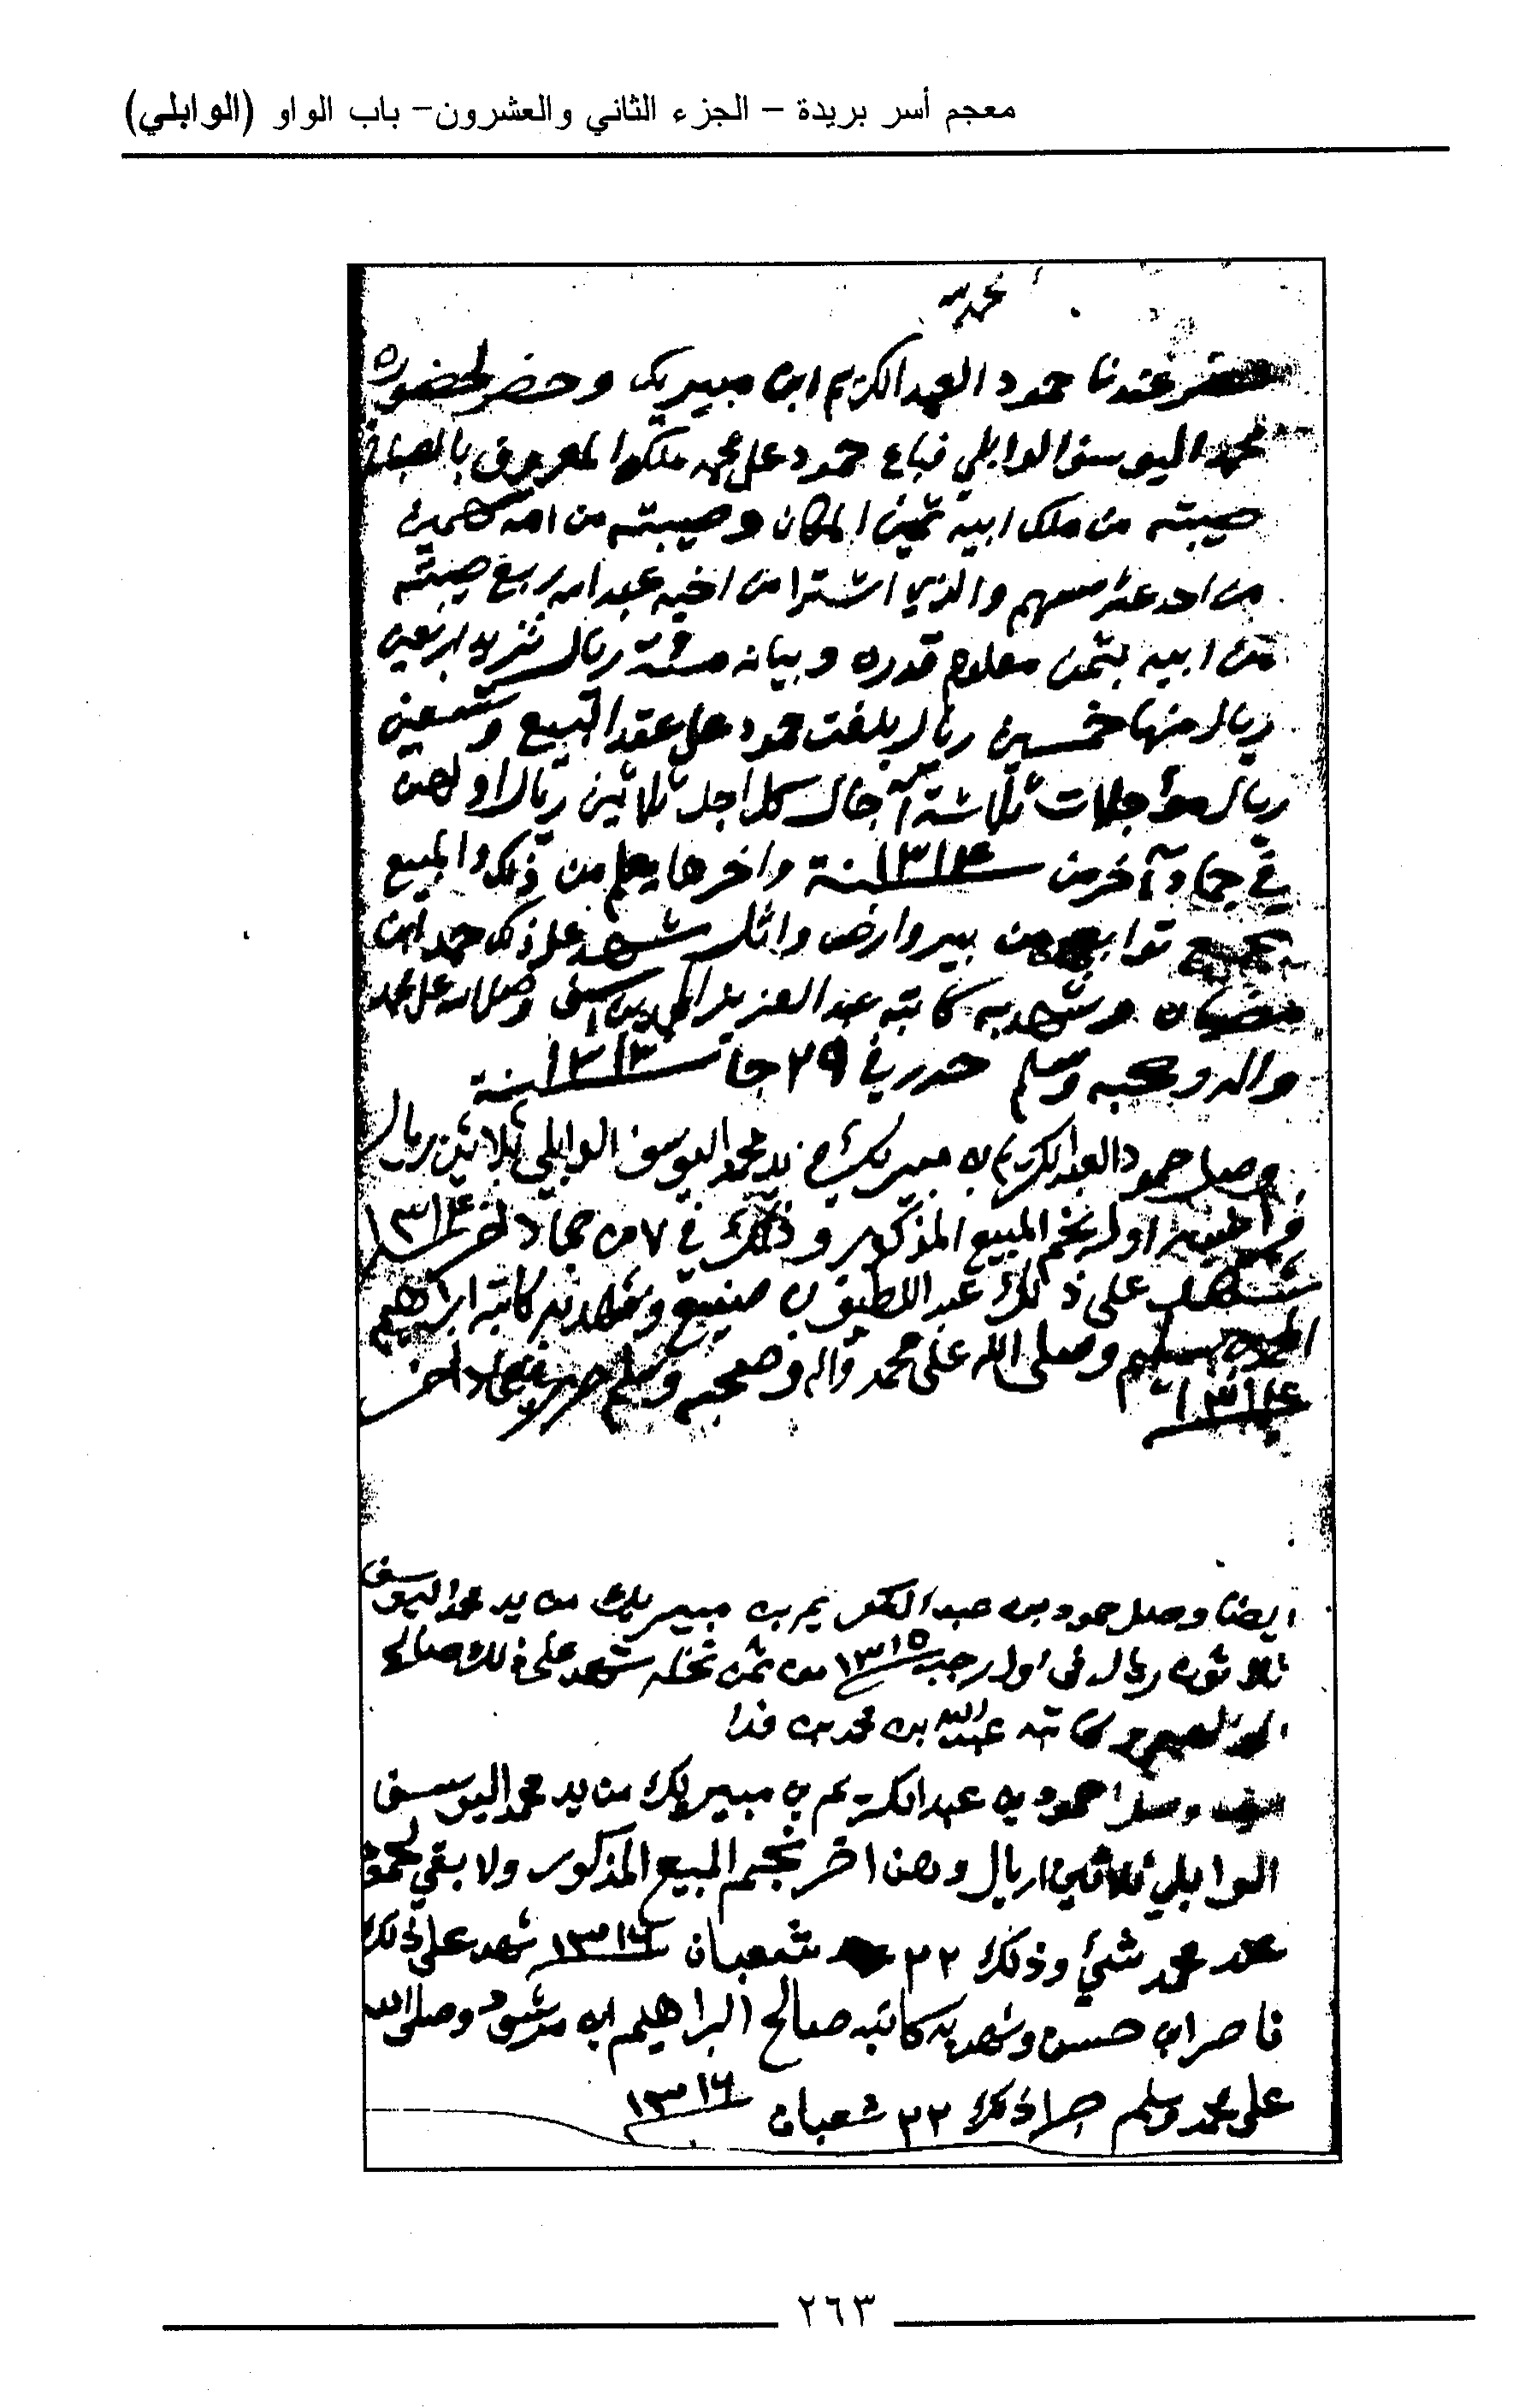 معجم أسر بريدة – الجزء الثاني والعشرون– باب الواو (الوابلي)
الحمد لله
حضر عندنا حمود العبد الكريم ابن مبيريك وحضر لحضوره
محمد اليوسف الوابلي فباع حمود على محمد ملكه المعروف بالصباخ
صيبته من ملك ابيه ثمين المكان وصيبته من امه سهمين
من احد عشر سهم والذي اشترا من اخيه عبد الله ربع صيبته
من ابيه بثمن معلوم قدره وبيانه مئة ريال تزيد اربعين
ريال منها خمسين ريال بلغت حمود على عقد البيع وتسعين
ريال مؤجلات ثلاثة آجال كل اجل ثلاثين ريال اولهن
في جماد آخر من سنة ١٣١٤ واخرها يعلم من ذلك والمبيع
بجميع توابعه من بير وارض واثل شهد على ذلك حمد ابن
وشهد به كاتبه عبد العزيز وصلى الله على محمد
واله وصحبه وسلم حرر في ٢٩ جا سنة ١٣١٣
وصل حمود العبد الكريم بن مبيريك من يد محمد اليوسف الوابلي ثلاثين ريال
اول نجم المبيع المذكور وذلك في ٧ من جماد اخر ١٣١٤
شهد على ذلك عبد اللطيف بن منيع وشهد به كاتبه ابراهيم
وصلى الله على محمد واله وصحبه وسلم حرر جماد اخر
١٣١٤
ايضا وصل حمود بن عبد الكريم بن مبيريك من يد محمد اليوسف
ثلاثون ريال في اول رجب ١٣١٥ من ثمن نخله شهد على ذلك صالح
وكاتبه عبد الله بن محمد بن فدا
وصل حمود بن عبد الكريم بن مبيريك من يد محمد اليوسف
الوابلي ثلاثين ريال وهن اخر نجم المبيع المذكور ولا بقي لحمود
عند محمد شئ وذلك ٢٢ شعبان ١٣١٦ شهد على ذلك
ناصر ابن حسن وشهد به كاتبه صالح البراهيم ابن مرشود وصلى الله
على محمد وسلم جرا ذلك ٢٢ شعبان ١٣١٦
٢٦٣